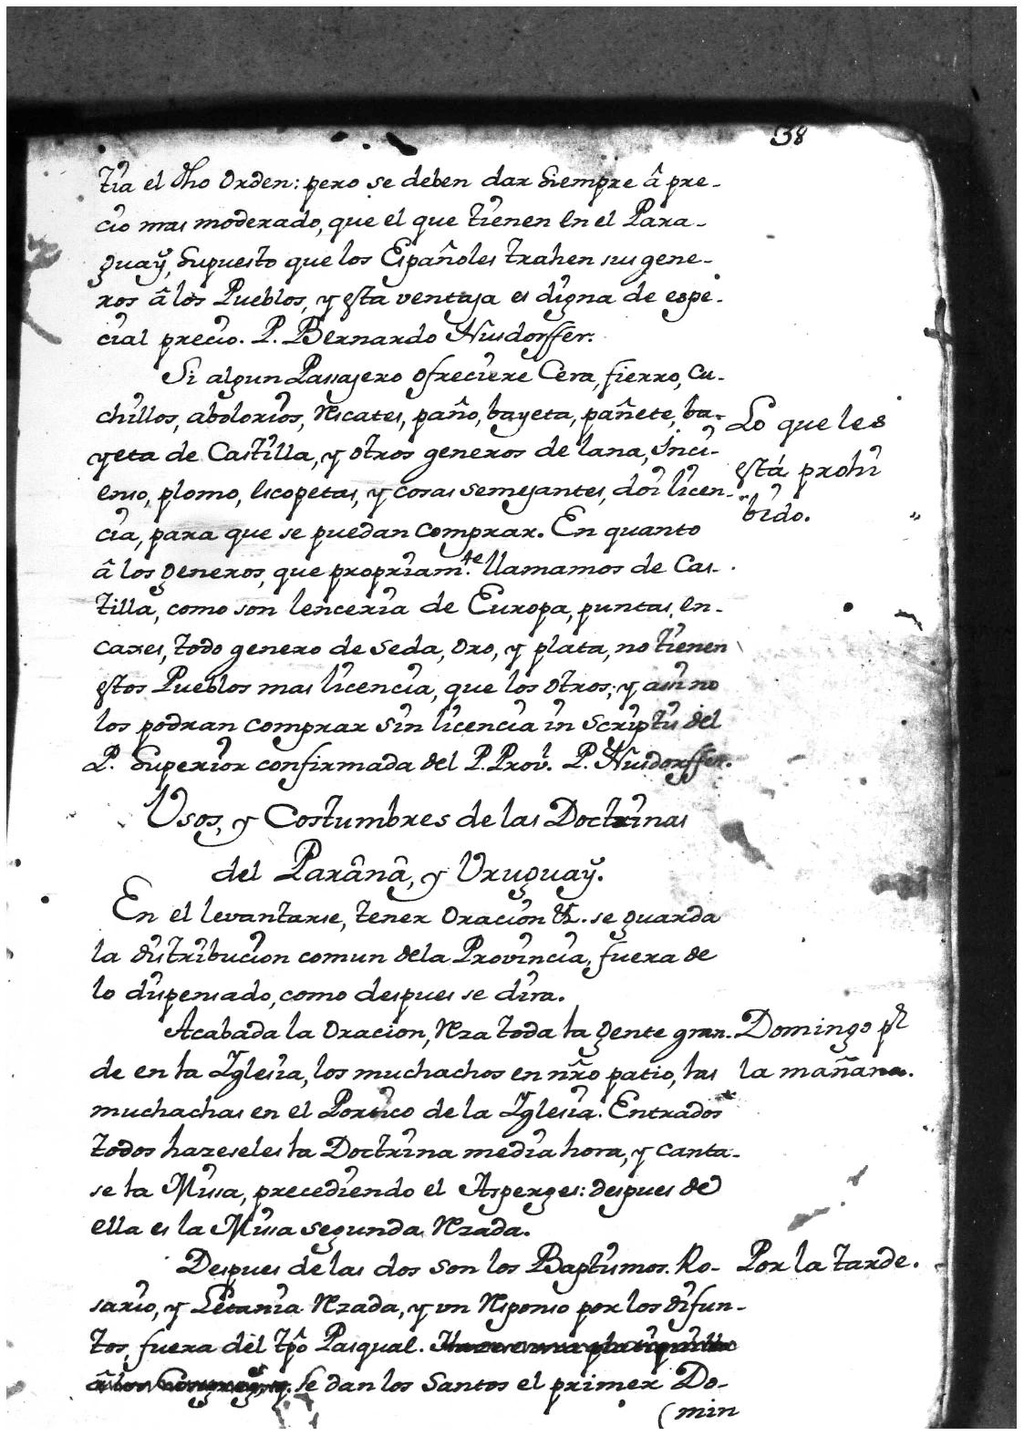 38
tia el dho orden: pero se deben dar siempre â pre-
cio mas moderado, que el que tienen en el Para-
guaÿ, supuesto que los Españoles trahen sus gene-
ros â los Pueblos, y esta ventaja es digna de espe-
cial precio. P. Bernardo Nusdorffer.
Si algun Passajero ofreciere Cera, fierro, cu-
chillos, abolorios, rescates, paño, bayeta, pañete, ba-
yeta de Castilla, y otros generos de lana, inci-
enso, plomo, escopetas, y cosas semejantes, doi licen-
cia, para que se puedan comprar. En quanto
â los generos, que propriam.te llamamos de Cas-
tilla, como son lenceria de Europa, puntas, en-
caxes, todo genero de seda, oro, y plata, no tienen
estos Pueblos mas licencia, que los otros; y assi no
los podran comprar sin licencia in scriptis del
P. Superior confirmada del P. Prov.l P. Nusdorffer.
Lo que les
está prohi
bido.
Usos, y Costumbres de las Doctrinas
del Parânâ, y Uruguaÿ.
En el levantarse, tener oracion &. se guarda
la distribucion comun de la Provincia, fuera de
lo dispensado, como despues se dira.
Acabada la oracion, reza toda la gente gran-
de en la Yglesia, los muchachos en nr̃o patio, las
muchachas en el Portico de la Yglesia. Entrados
todos hazeseles la Doctrina media hora, y canta-
se la Missa, precediendo el Asperges: despues de
ella es la Missa segunda rezada.
Domingo pr
la mañana.
Despues de las dos son los Baptismos. Ro-
sario, y Letania rezada, y un responso por los difun-
tos, fuera del tp̂o Pasqual.
se dan los Santos el primer Do-
(min
Por la tarde.